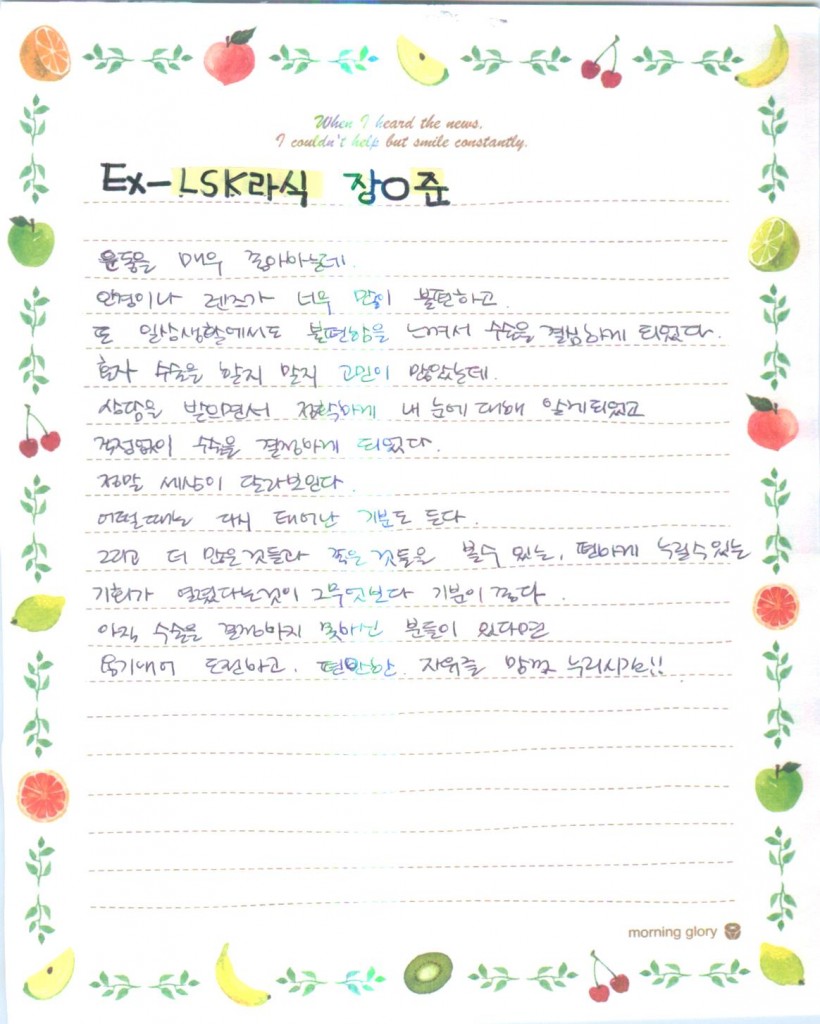 When I heard the news,
I couldn't help but smile constantly.
Ex-LSK라식 장O준
운동을 매우 좋아하는데
안경이나 렌즈가 너무 많이 불편하고
또 일상생활에서도 불편함을 느껴서 수술을 결심하게 되었다.
혼자 수술을 할지 말지 고민이 많았는데.
상담을 받으면서 정확하게 내 눈에 대해 알게되었고
걱정없이 수술을 결정하게 되었다.
정말 세상이 달라보인다.
어떨때는 다시 태어난 기분도 든다.
그리고 더 많은것들과 찍은것들을 볼수 있는, 편하게 누릴수있는
기회가 열렸다는것이 그무엇보다 기분이 좋다.
아직 수술을 결정하지 못하신 분들이 있다면
용기내어 도전하고. 편안한 자유를 맘껏 누리시기요!!
morning glory